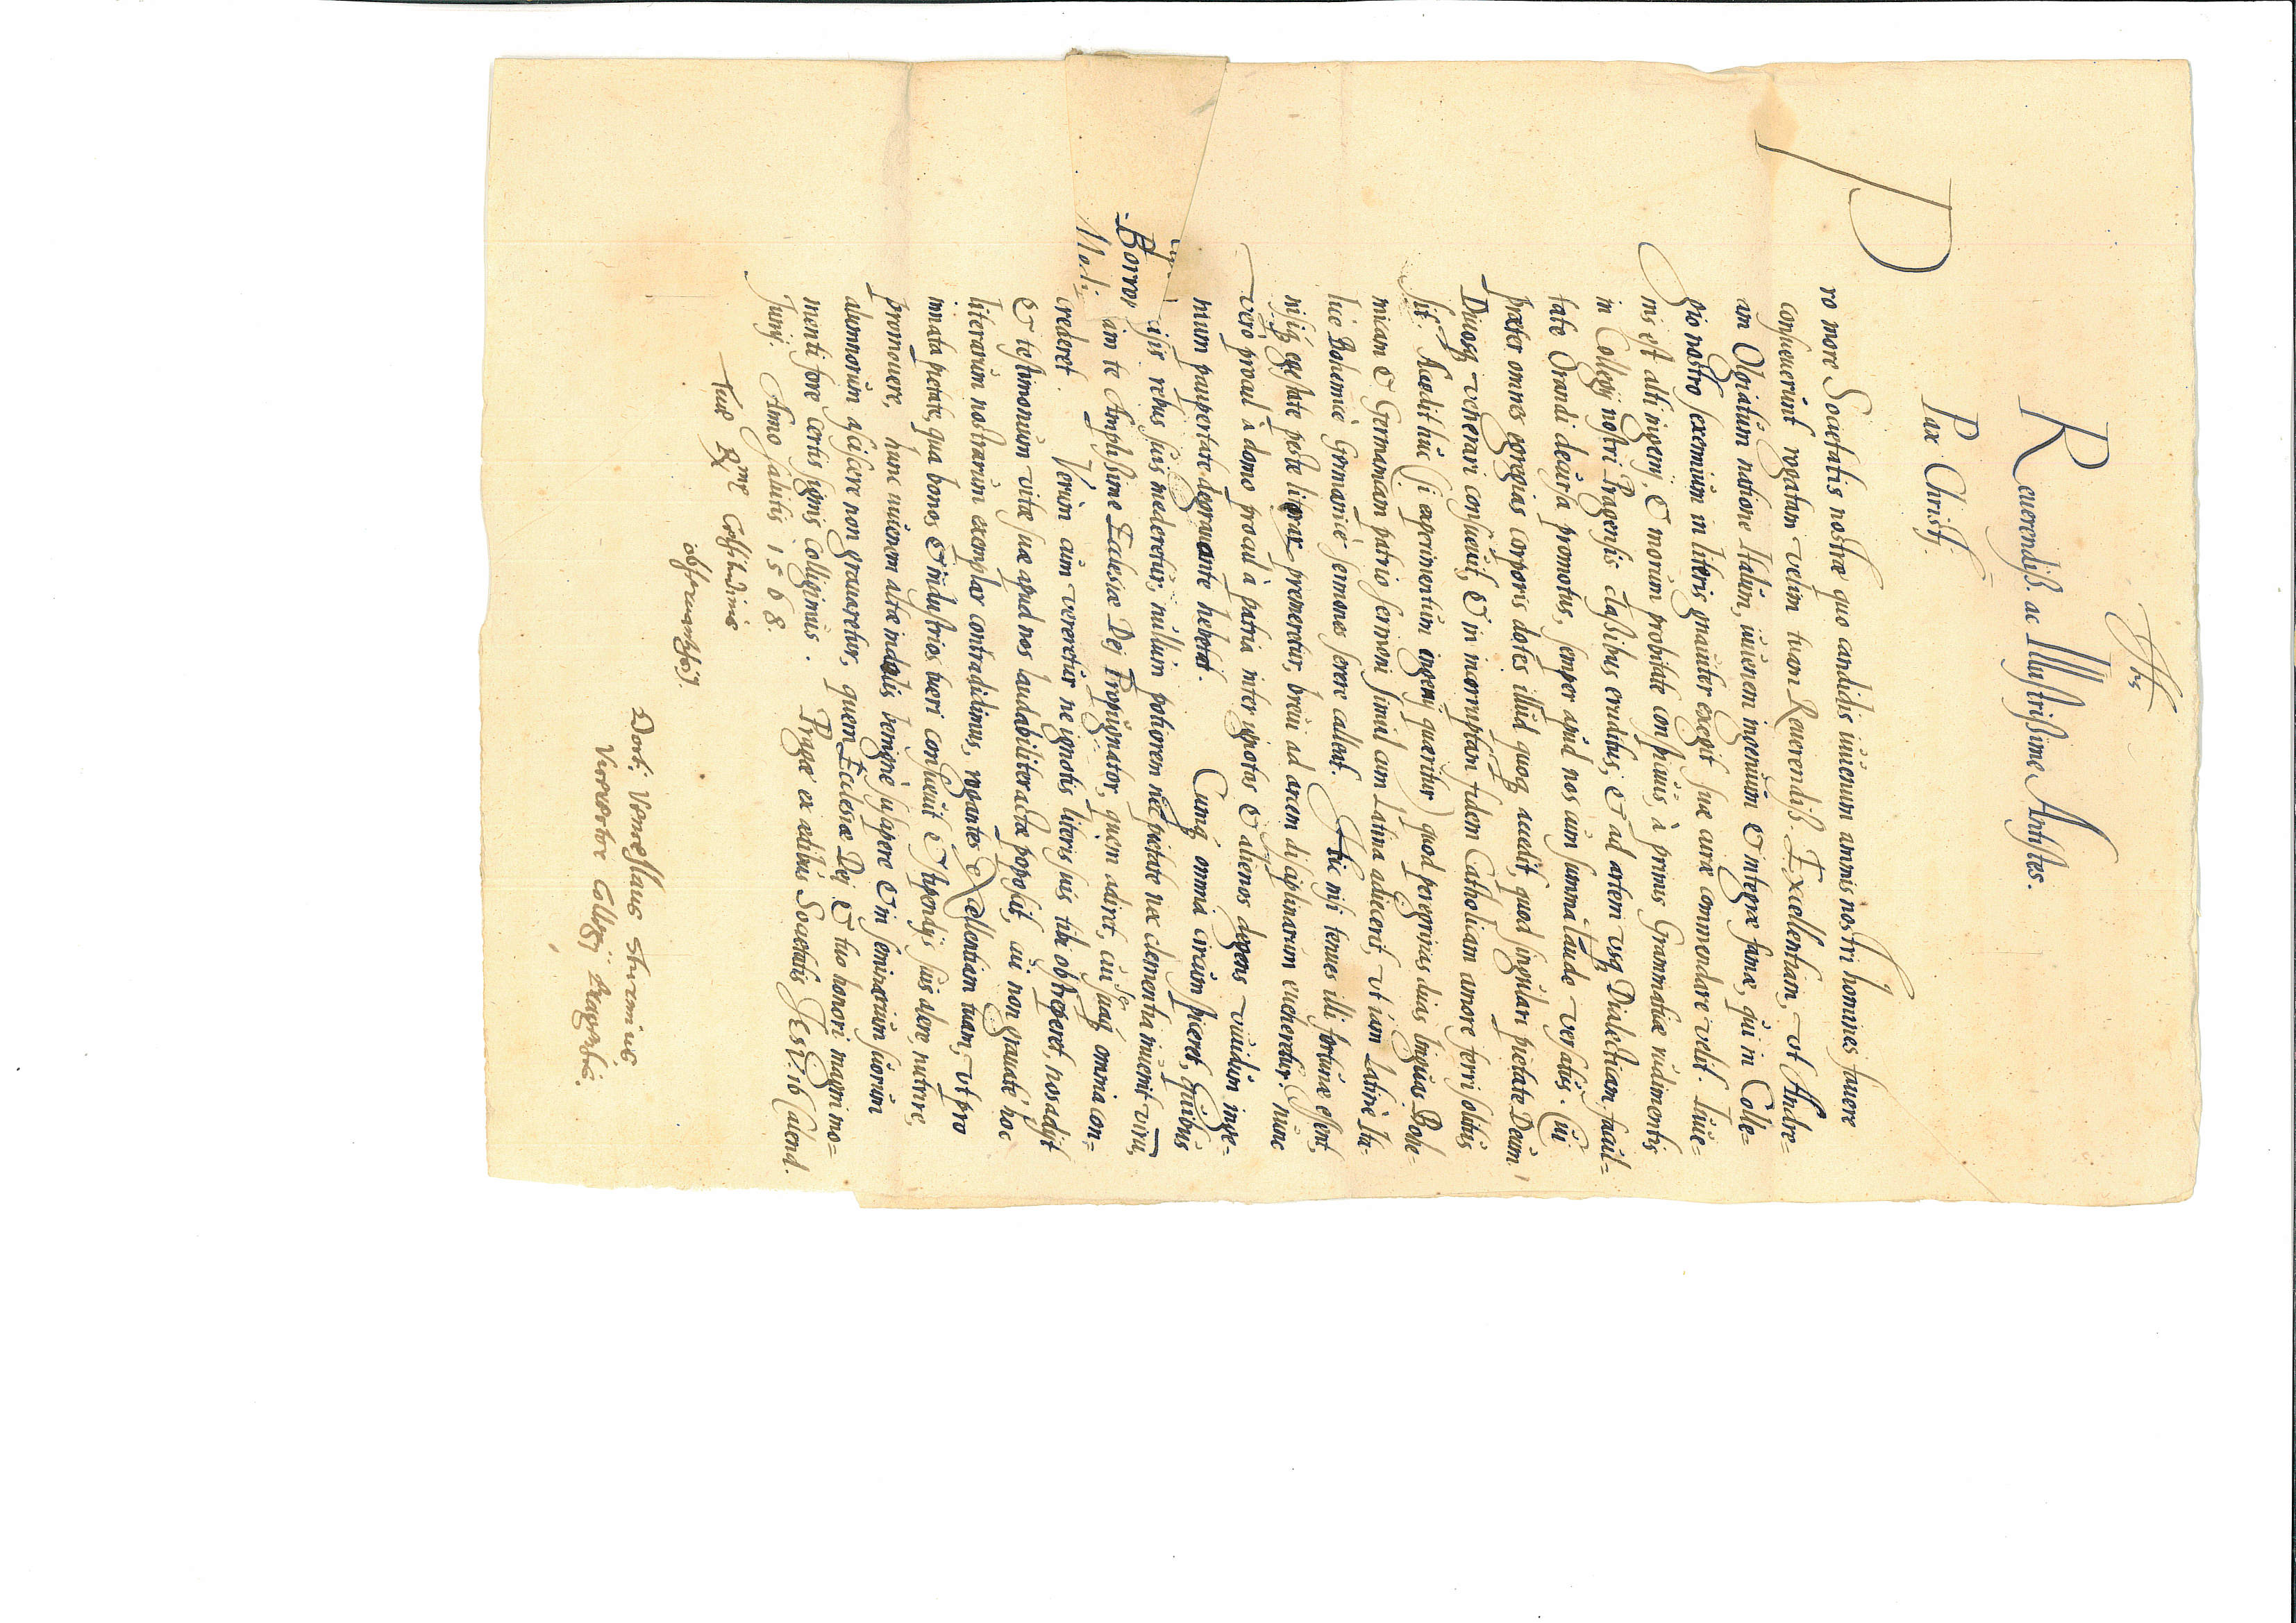 Jhs
Reuerendiß. ac Illustrißime Antistes.
Pax Christi.
Pro more Societatis nostræ quo candidis iuuenum animis nostri homines fauere
consueuerunt rogatam velim tuam Reuerendiß. Excellentiam, vt Andre=
am Olgiatum natione Italum, iuuenem ingenuum & integræ famæ, qui in Colle=
gio nostro sexennium in literis gnauiter exegit suæ curæ commendare velit. Iuue=
nis est alti ingenij, & morum probitate conspicuus, à primis Grammaticæ rudimentis
in Collegij nostri Pragensis classibus eruditus, et ad artem vsq Dialecticam, facul=
tate Orandi decursa promotus, semper apud nos cum summa laude versatus. Cui
præter omnes egregias corporis dotes illud quoq accedit, quod singulari pietate Deum
Diuosq venerari consueuit, & in incorruptam fidem Catholicam amore ferri solitus
sit. Accedit huc (si experimentum ingenij quæritur) quod peregrinas duas linguas Bohe=
micam & Germanicam patrio sermoni simul cum Latina adiecerit, vt iam Latinè Ita=
licè Bohemicè Germanicè sermones serere calleat. Hic nisi tenues illi fortunæ essent,
nisiq egestate peste literar premeretur, breui ad arcem disciplinarum eueheretur: nunc
verò procul à domo procul à patria inter ignotos & alienos degens viuidum inge=
nium paupertate degrauante hebetat. Cumq omnia circumspiceret, quibus
isis rebus suis mederetur, nullum potiorem nec pietate nec clementia inuenit virum,
Borro am te Amplissime Ecclesiæ Dej Propugnator, quem adiret, cui se suaq omnia con=
Modi crederet. Verum cum vereretur ne ignotis literis suis tibi obstreperet, nos adijt
& testimonium vitæ suæ apud nos laudabiliter actæ poposcit, cui non grauatè hoc
literarum nostrarum exemplar contradidimus, rogantes Excellentiam tuam, vt pro
innata pietate, qua bonos & industrios tueri consueuit & stipendijs suis alere, nutrire,
promouere, hunc iuuenem altæ indolis benignè suscipere & in seminarium suorum
alumnorum asciscere non grauaretur, quem Ecclesiæ Dej & tuo honori magni mo=
menti fore certis signis colligimus. Pragæ ex ædibus Societatis Jesv. 16 Calend.
Junij. Anno salutis 1568.
Tuæ Rmæ Celsitudinis
obseruantiss.
Doct. Venceslaus Sturmius
Vicerector Collegij Pragensis.